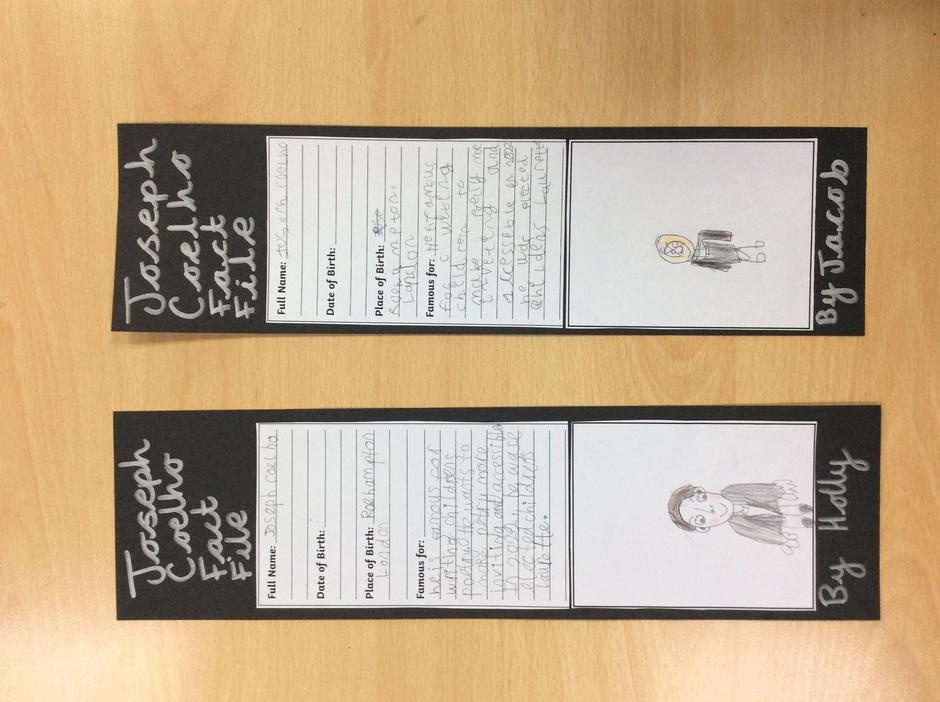 Joseph
Coelho
Fact
File
Full Name: Joseph coelho
Date of Birth:
Place of Birth:
Roehampton.
London
Famous for: He ramous
for writing
children to
make poetry me
inveeting and
accesseble in 2022
he wde elected
childdens Laurete
By Jacob
Joseph
Coelho
Fact
File
Full Name: Joseph coelho
Date of Birth:
Place of Birth: Roehampton
London
Famous for:
he is famous for
writing childrens
poetry
make petry more
inviting and accessible
in 2022, he wase
elected childrens
laurette.
By Holly